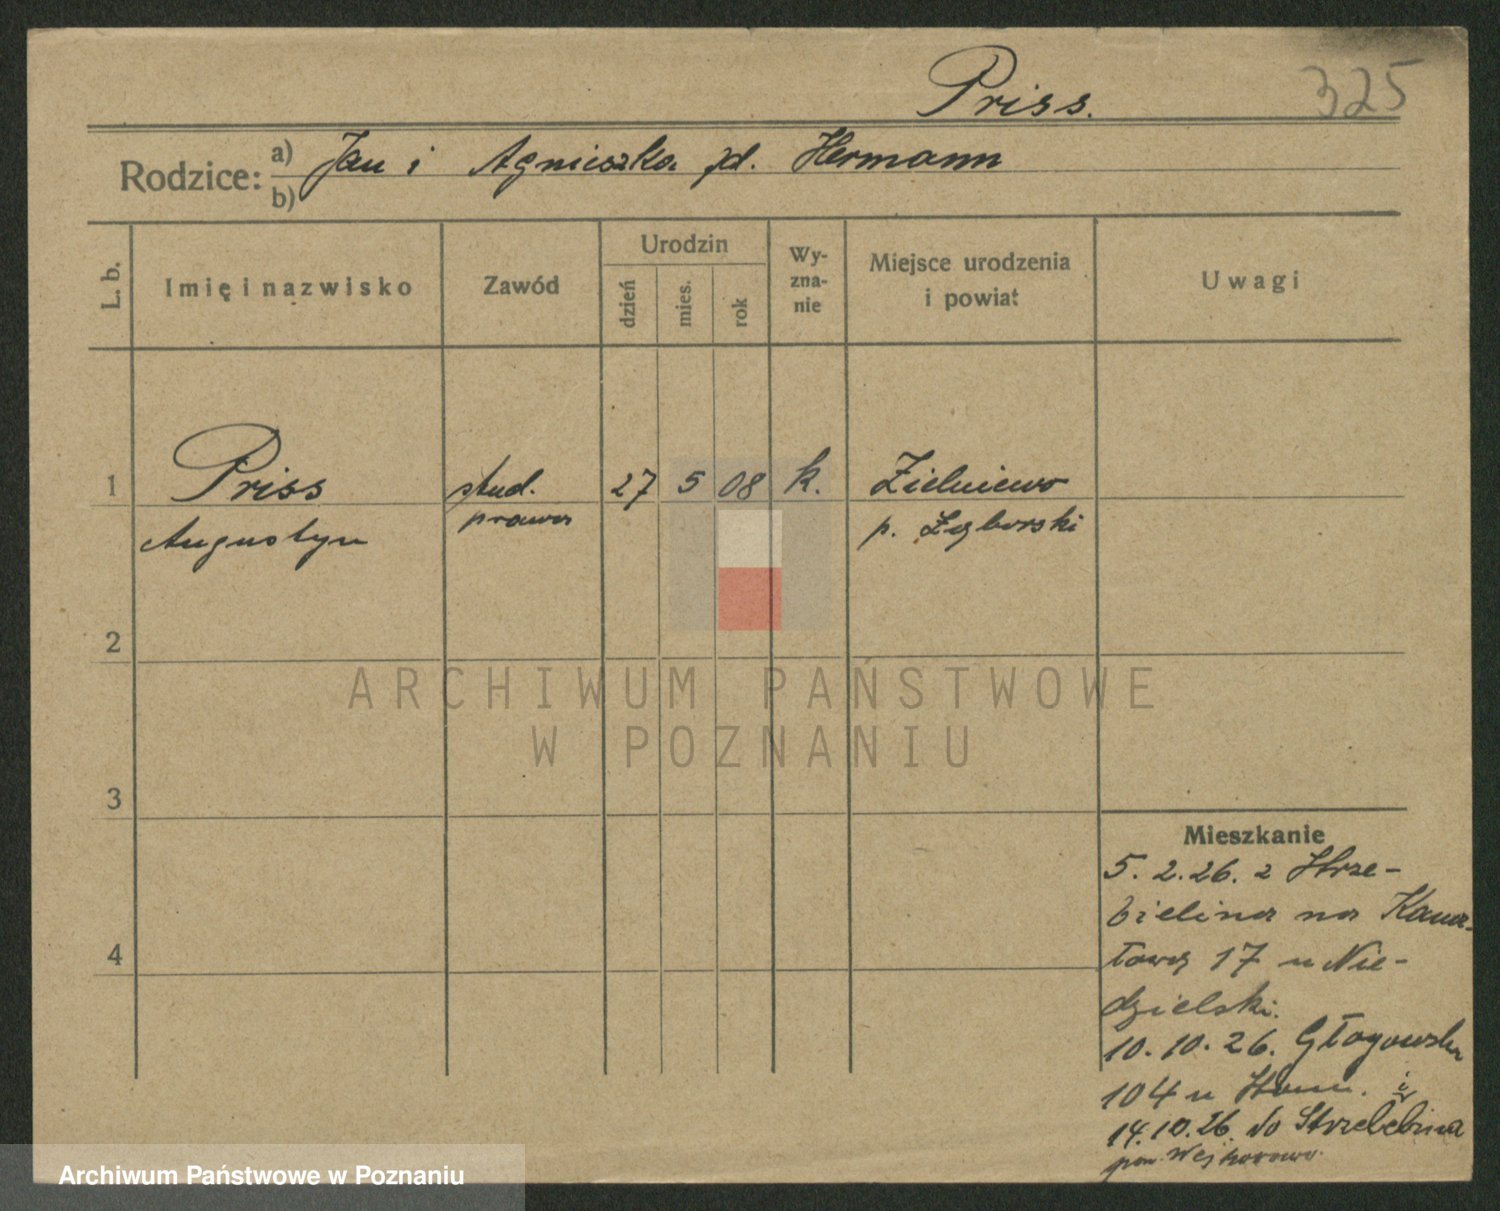 Priss.
325
Rodzice: a) Jan i Agnieszka zd. Hermann
b)
L. b.
Imię i nazwisko
Zawód
Urodzin
dzień
mies.
rok
Wy-
zna-
nie
Miejsce urodzenia
i powiat
Uwagi
1 Priss stud. 27 5 08 k. Zielniewo
Augustyn prawa p.
2
ARCHIWUM PAŃSTWOWE
W POZNANIU
3
Mieszkanie
5. 2. 26. z Strze-
bielina na Kana-
łową 17 u Nie-
dzielski.
10. 10. 26. Głogowska
104 u
14.10.26 do Strzebielina
pow. Wejherowo.
4
Archiwum Państwowe w Poznaniu